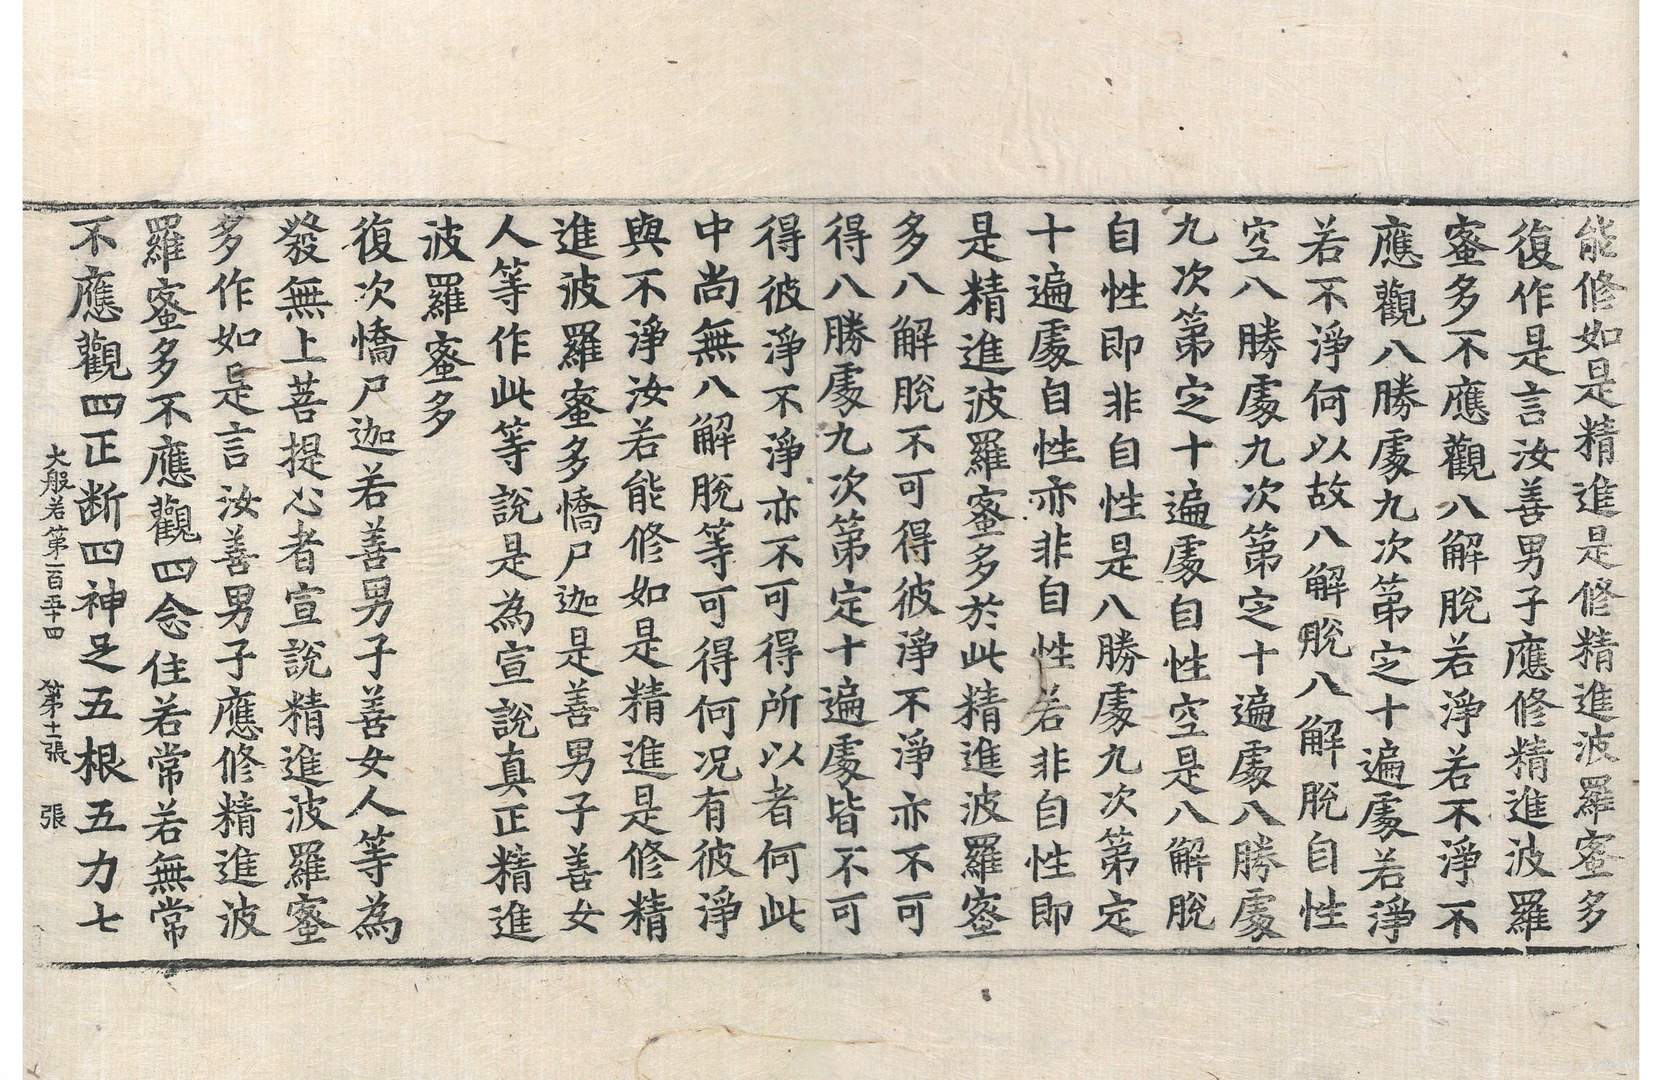 能修如是精進是修精進波羅蜜多
復作是言汝善男子應修精進波羅
蜜多不應觀八解脫若淨若不淨不
應觀八勝處九次第定十遍處若淨
若不淨何以故八解脫八解脫自性
空八勝處九次第定十遍處八勝處
九次第定十遍處自性空是八解脫
自性即非自性是八勝處九次第定
十遍處自性亦非自性若非自性即
是精進波羅蜜多於此精進波羅蜜
多八解脫不可得彼淨不淨亦不可
得八勝處九次第定十遍處皆不可
得彼淨不淨亦不可得所以者何此
中尚無八解脫等可得何况有彼淨
與不淨汝若能修如是精進是修精
進波羅蜜多憍尸迦是善男子善女
人等作此等說是為宣說真正精進
波羅蜜多
復次憍尸迦若善男子善女人等為
發無上菩提心者宣說精進波羅蜜
多作如是言汝善男子應修精進波
羅蜜多不應觀四念住若常若無常
不應觀四正断四神足五根五力七
大般若第一百五十四 第十一張 張